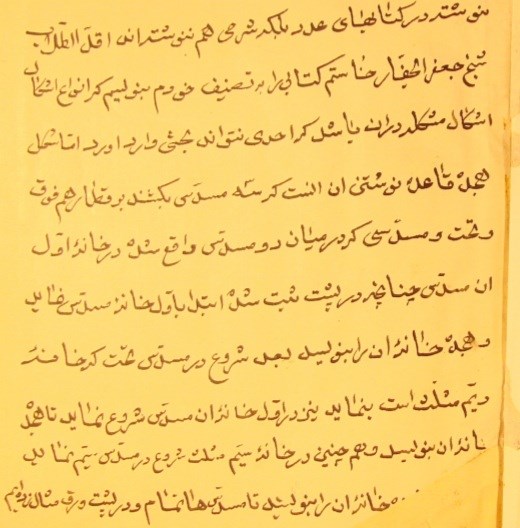 ننوشته در کتابهای عدد بلکه شرحی هم ننوشته اند اقل الطلاب
شیخ جعفر الحفار خاستم کتابی را به تصنیف خودم بنویسم که انواع اشکال
اشکال مشکله دران باشد که احدی نتواند بحثی وارد اورد اما شکل
هجده قاعده نوشتنی ان انست که سه مسدس بکشند بر قطار هم فوق
و تحت و مسدسی که در میان دو مسدس واقع شده در خانهٔ اول
ان مسدس چنانچه در پشت ثبت شده ابتدا باول خانهٔ مسدس نماید
و هجده خانهٔ ان را بنویسد بعد شروع در مسدس تحت که خانهٔ
دیم مثلث است بنماید یز در اول خانهٔ ان مسدس شروع نماید تا هجده
خانهٔ ان بنویسد و هم چنین در خانهٔ سیم مثلث شروع در مسدس سیم نماید
خانهٔ ان را بنویسد تا مسدس ها تمام و در پشت ورق مثال زده ایم